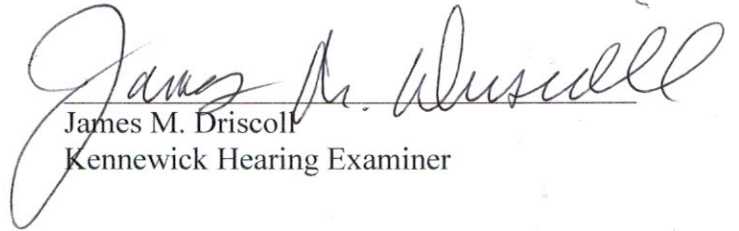 James M. Driscoll
James M. Driscoll
Kennewick Hearing Examiner